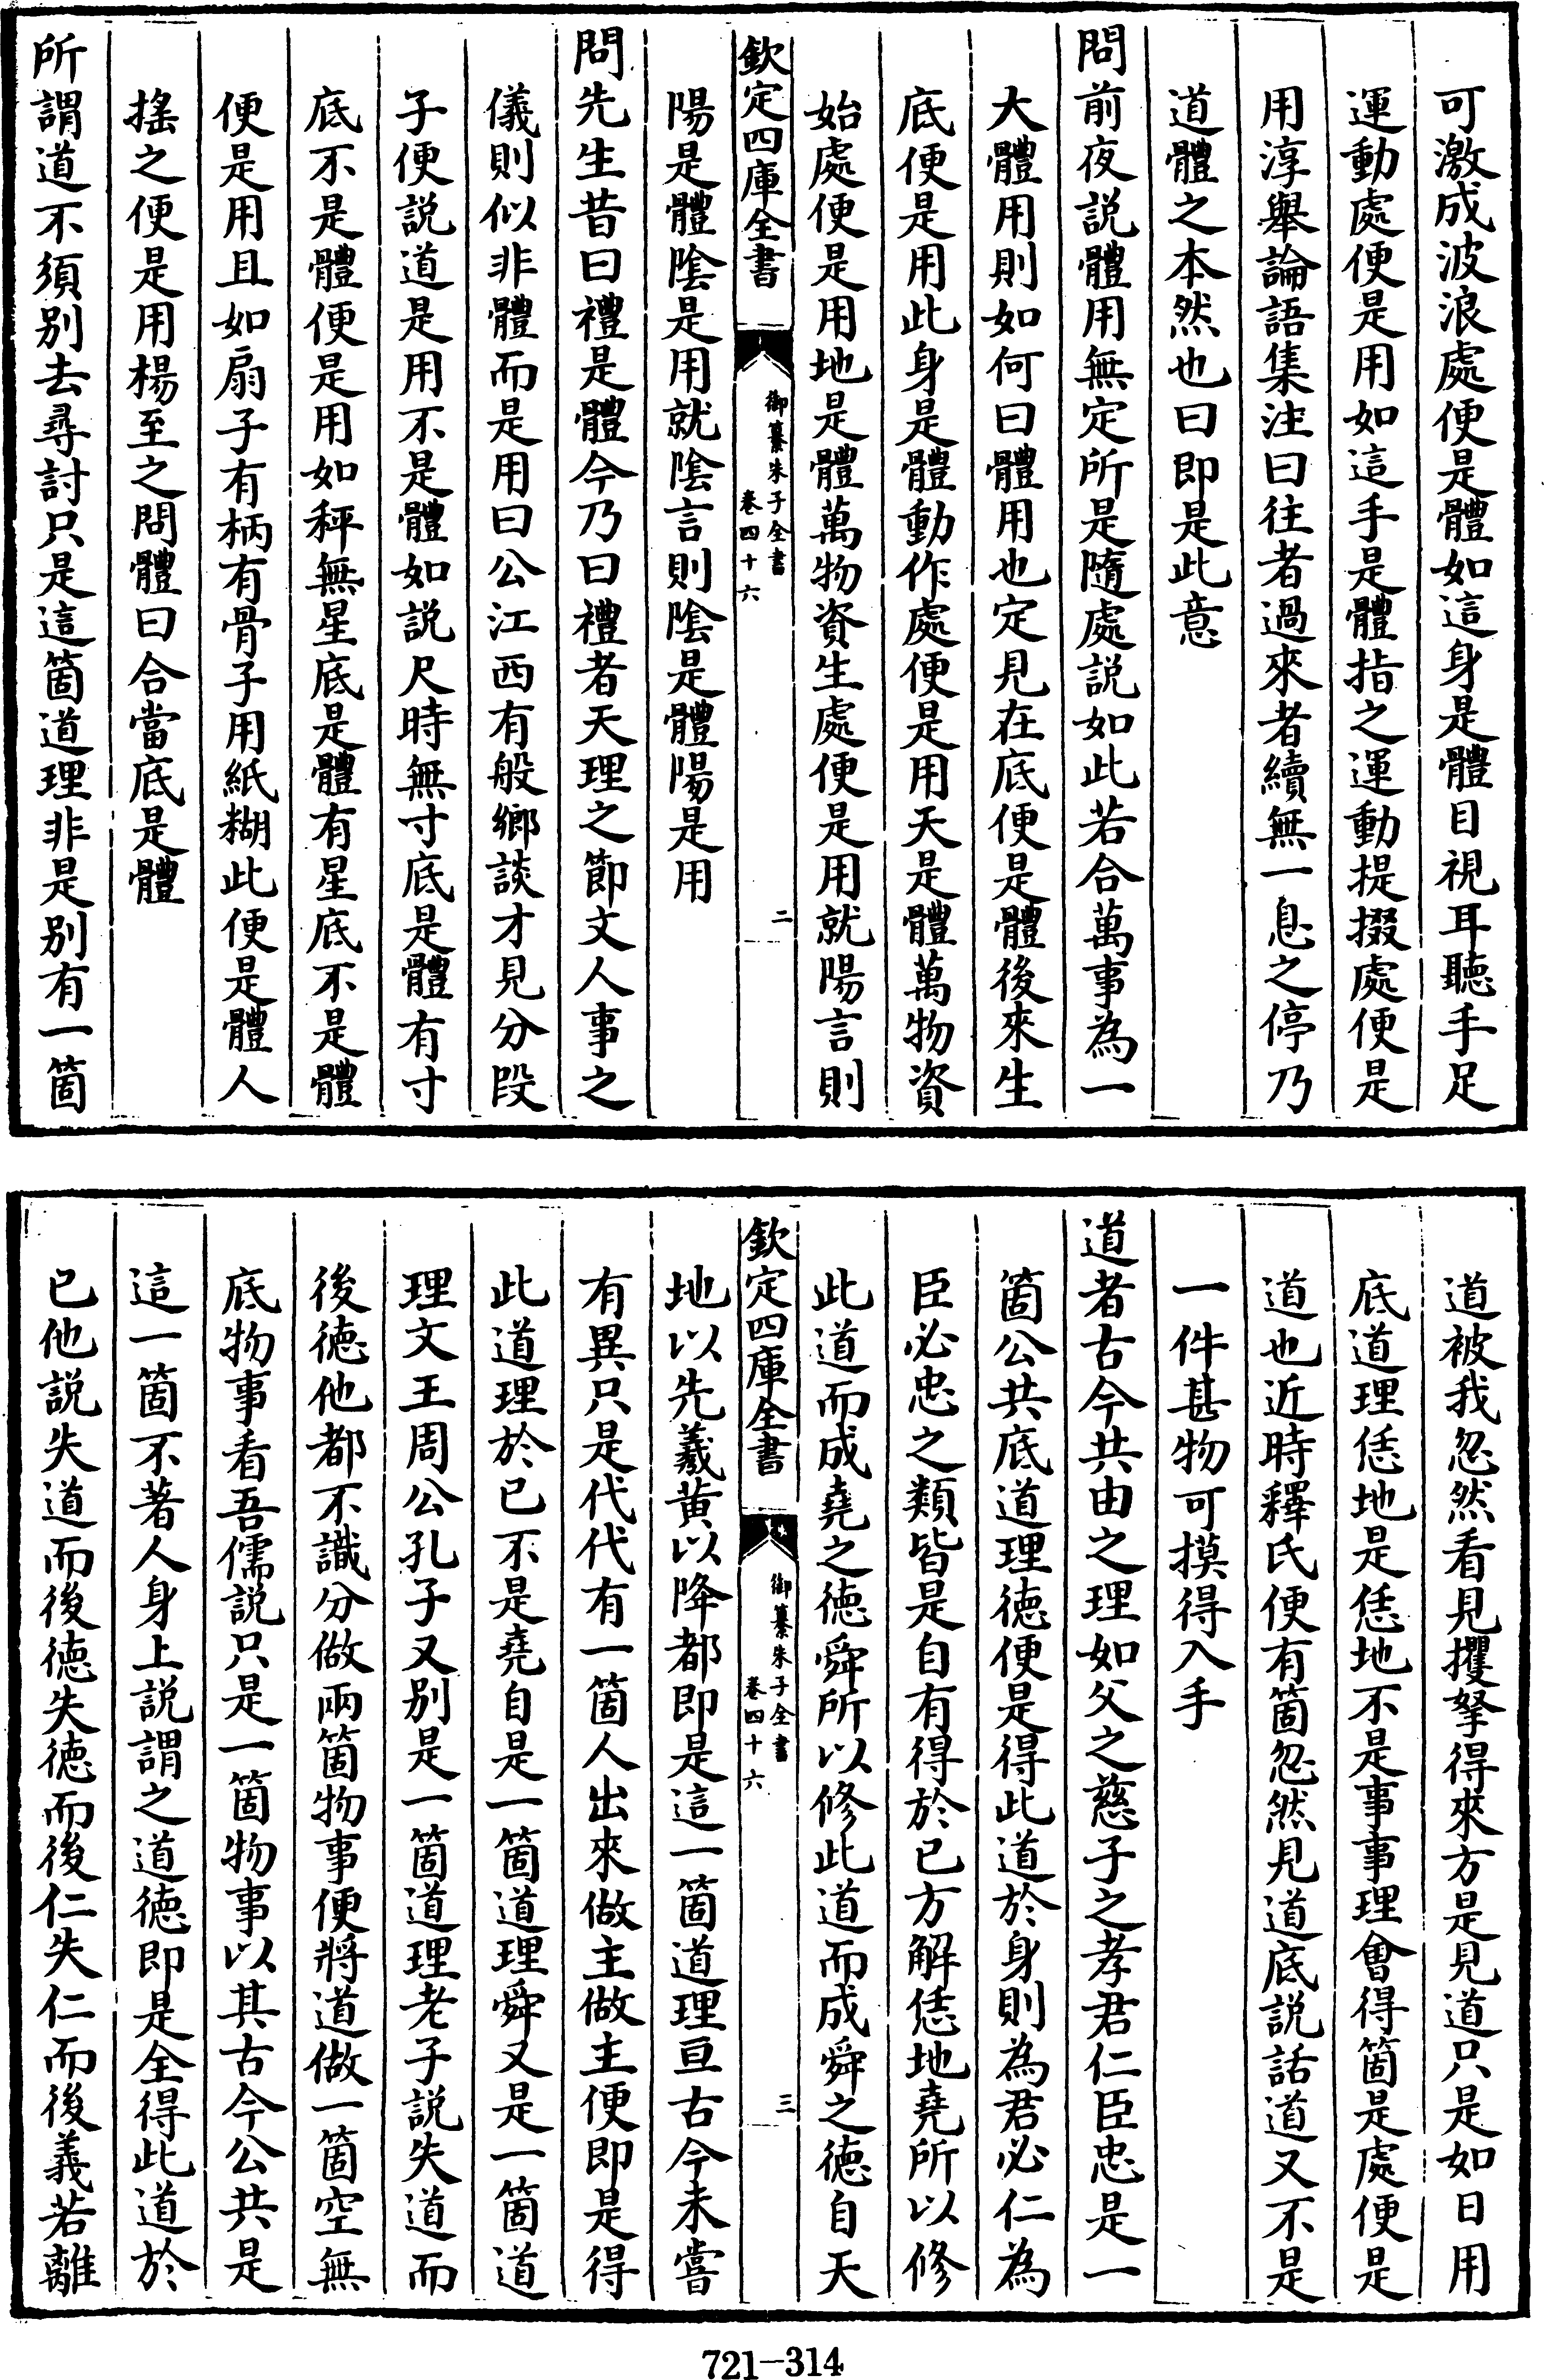 可激成波浪處便是體如這身是體目視耳聽手足
運動處便是用如這手是體指之運動提掇處便是
用淳舉論語集注曰往者過來者續無一息之停乃
道體之本然也曰即是此意
問前夜説體用無定所是隨處説如此若合萬事為一
大體用則如何曰體用也定見在底便是體後來生
底便是用此身是體動作處便是用天是體萬物資
始處便是用地是體萬物資生處便是用就陽言則
欽定四庫全書
御纂朱子全書
卷四十六
二
陽是體陰是用就陰言則陰是體陽是用
問先生昔曰禮是體今乃曰禮者天理之節文人事之
儀則似非體而是用曰公江西有般鄉談才見分段
子便説道是用不是體如説尺時無寸底是體有寸
底不是體便是用如秤無星底是體有星底不是體
便是用且如扇子有柄有骨子用紙糊此便是體人
搖之便是用楊至之問體曰合當底是體
所謂道不須別去尋討只是這箇道理非是別有一箇
道被我忽然看見攫拏得來方是見道只是如日用
底道理恁地是恁地不是事事理會得箇是處便是
道也近時釋氏便有箇忽然見道底説話道又不是
一件甚物可摸得入手
道者古今共由之理如父之慈子之孝君仁臣忠是一
箇公共底道理德便是得此道於身則為君必仁為
臣必忠之類皆是自有得於已方解恁地堯所以修
此道而成堯之德舜所以修此道而成舜之德自天
欽定四庫全書
御纂朱子全書
卷四十六
三
地以先羲黃以降都即是這一箇道理亘古今未嘗
有異只是代代有一箇人出來做主做主便即是得
此道理於已不是堯自是一箇道理舜又是一箇道
理文王周公孔子又別是一箇道理老子説失道而
後德他都不識分做兩箇物事便將道做一箇空無
底物事看吾儒説只是一箇物事以其古今公共是
這一箇不著人身上説謂之道德即是全得此道於
已他説失道而後德失德而後仁失仁而後義若離
721-314